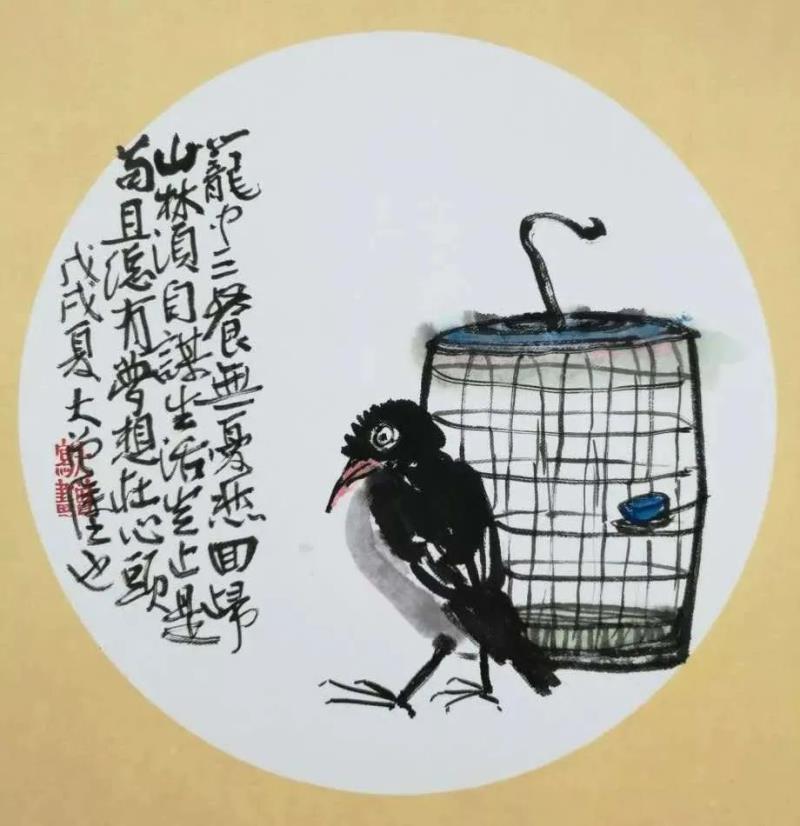 籠中三餐無憂愁回歸
山林須自謀生活豈止是
苟且總有夢想在心頭
戊戌夏大也